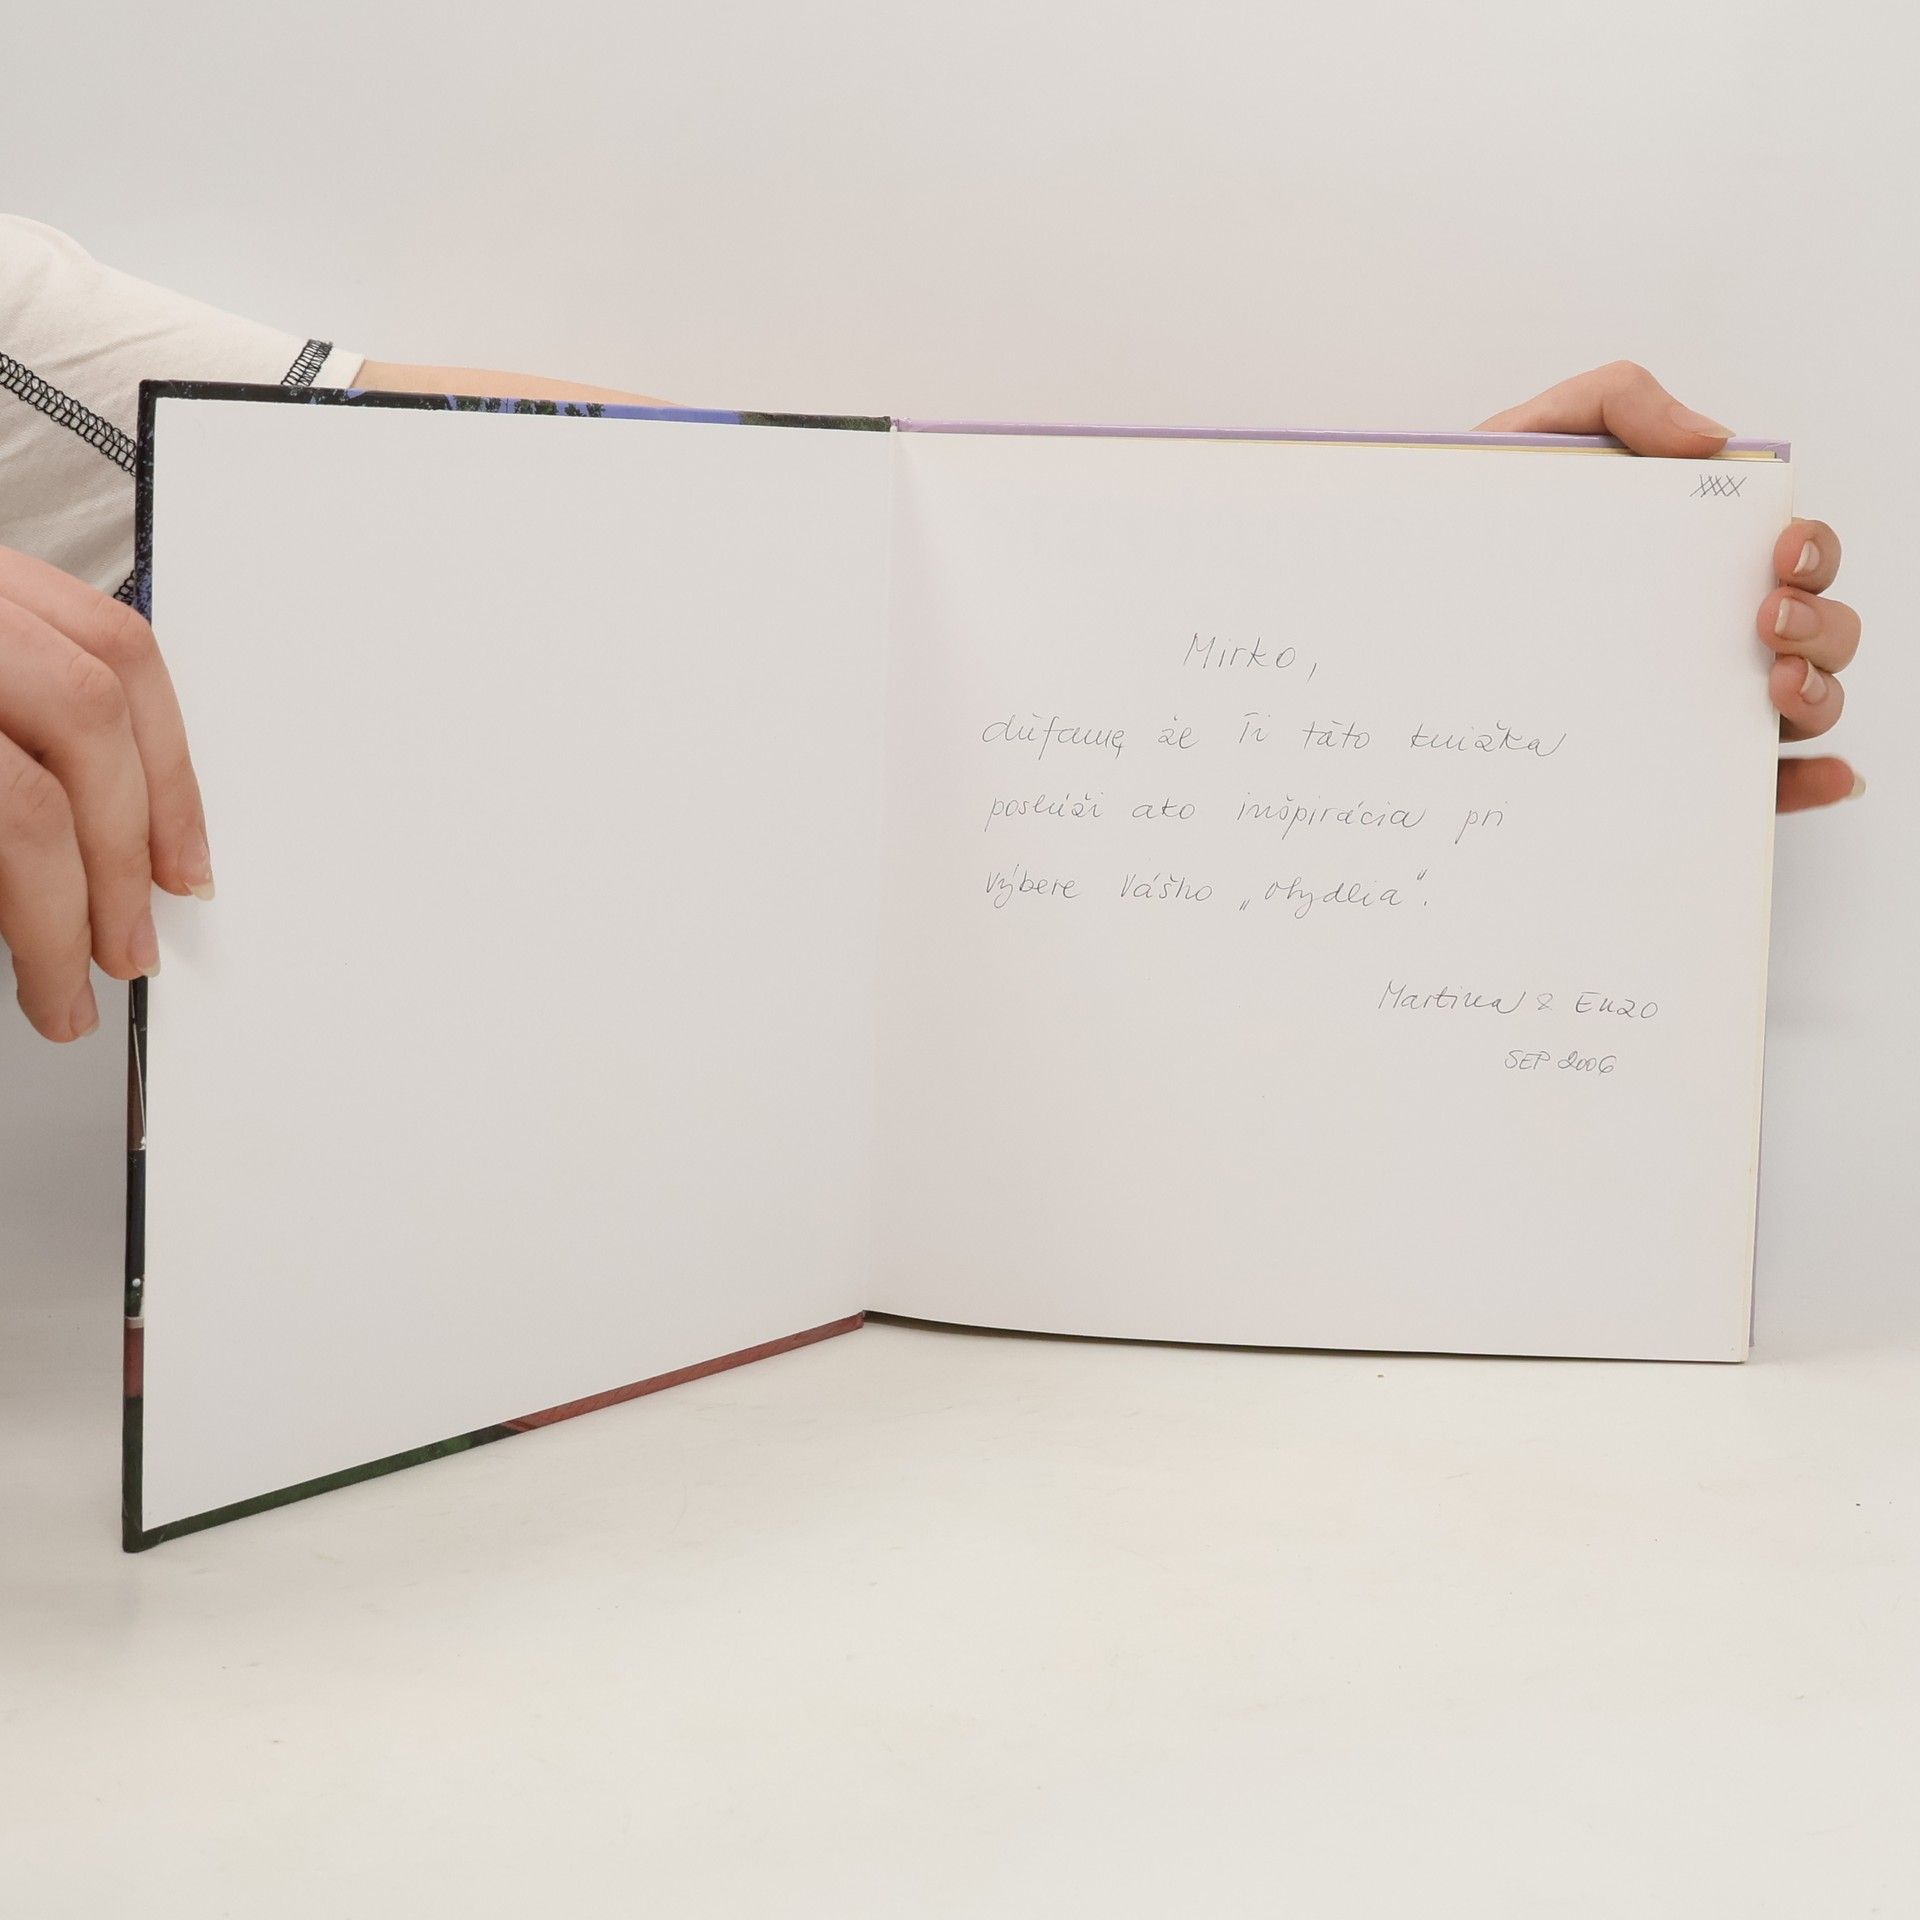 XXXX
Mirko,
dúfame, že Ti táto knižka
poslúži ako inšpirácia pri
výbere Vášho „obydlia“.
Martina & Enzo
SEP 2006